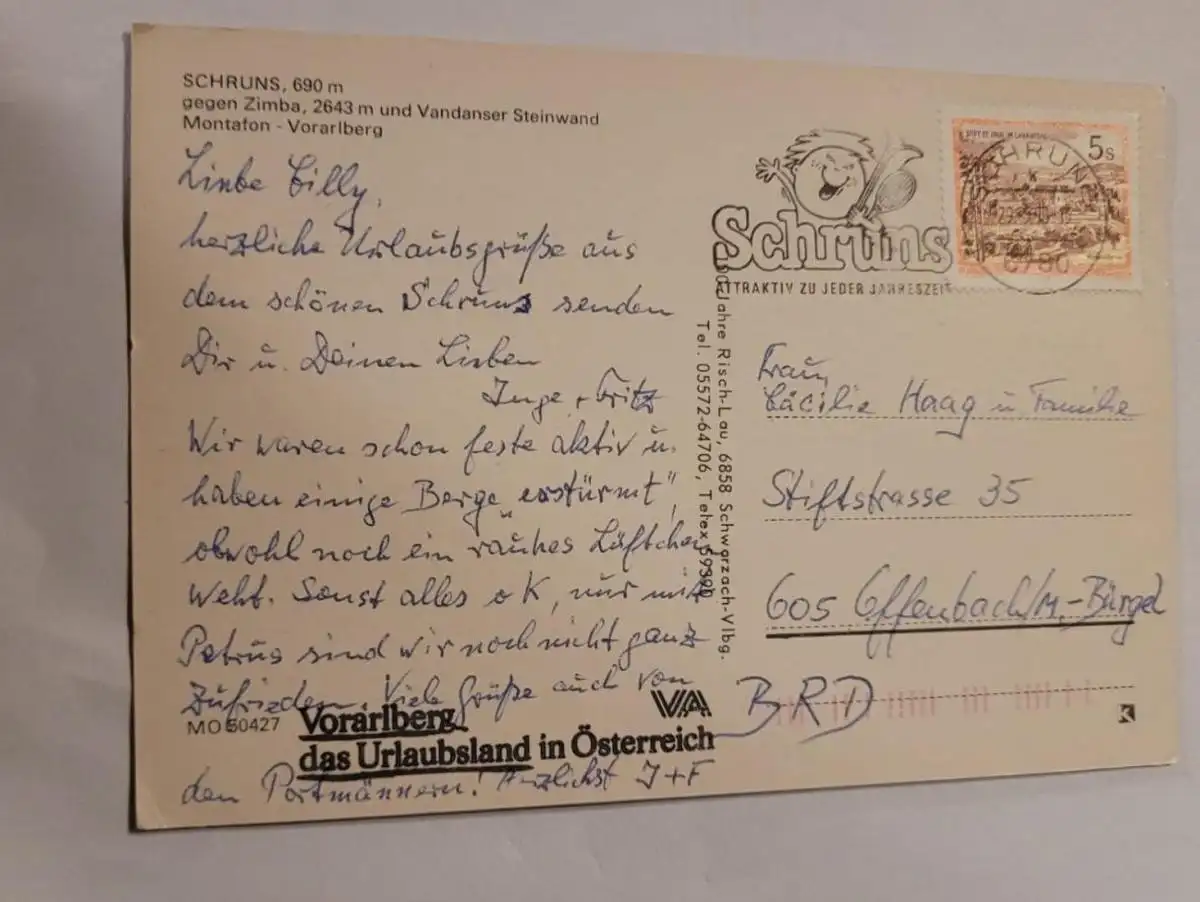 SCHRUNS, 690 m
gegen Zimba, 2643 m und Vandanser Steinwand
Montafon - Vorarlberg
Liebe Cilly,
herzliche Urlaubsgrüße aus
dem schönen Schruns senden
Dir u. Deinen Lieben
Inge + Fritz
Wir waren schon feste aktiv u.
haben einige Berge „erstürmt",
obwohl noch ein rauhes Lüftchen
weht. Sonst alles oK, nur mit
Petrus sind wir noch nicht ganz
zufrieden. Viele Grüße auch von
den Portmännern! Herzlichst I+F
MO 50427
Vorarlberg
das Urlaubsland in Österreich
VA
Jahre Risch-Lau, 6858 Schwarzach-Vlbg.
Tel. 05572-64706, Telex 59390
Schruns
ATTRAKTIV ZU JEDER JAHRESZEIT
5s
SCHRUNS
6780
Frau
Cäcilie Haag u Familie
Stiftstrasse 35
605 Offenbach/M.-Bürgel
BRD
K